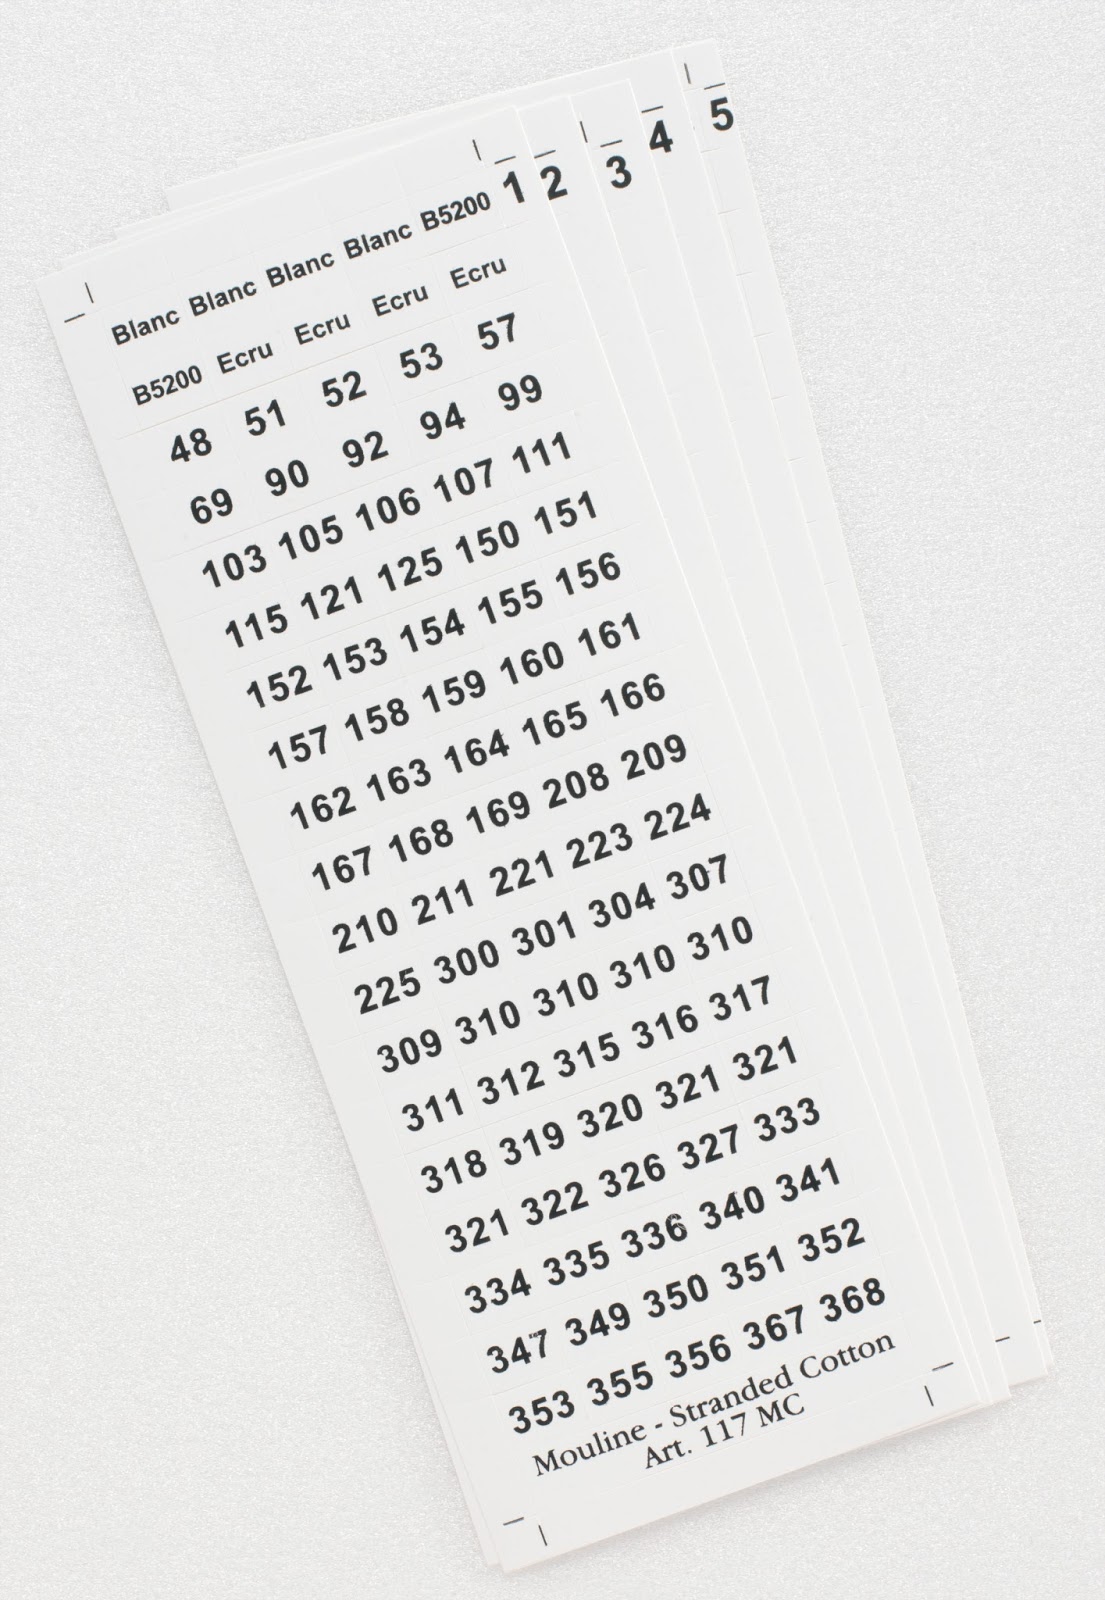 1 2 3 4 5
Blanc Blanc Blanc Blanc B5200
B5200 Ecru Ecru Ecru Ecru
48 51 52 53 57
69 90 92 94 99
103 105 106 107 111
115 121 125 150 151
152 153 154 155 156
157 158 159 160 161
162 163 164 165 166
167 168 169 208 209
210 211 221 223 224
225 300 301 304 307
309 310 310 310 310
311 312 315 316 317
318 319 320 321 321
321 322 326 327 333
334 335 336 340 341
347 349 350 351 352
353 355 356 367 368
Mouline - Stranded Cotton
Art. 117 MC